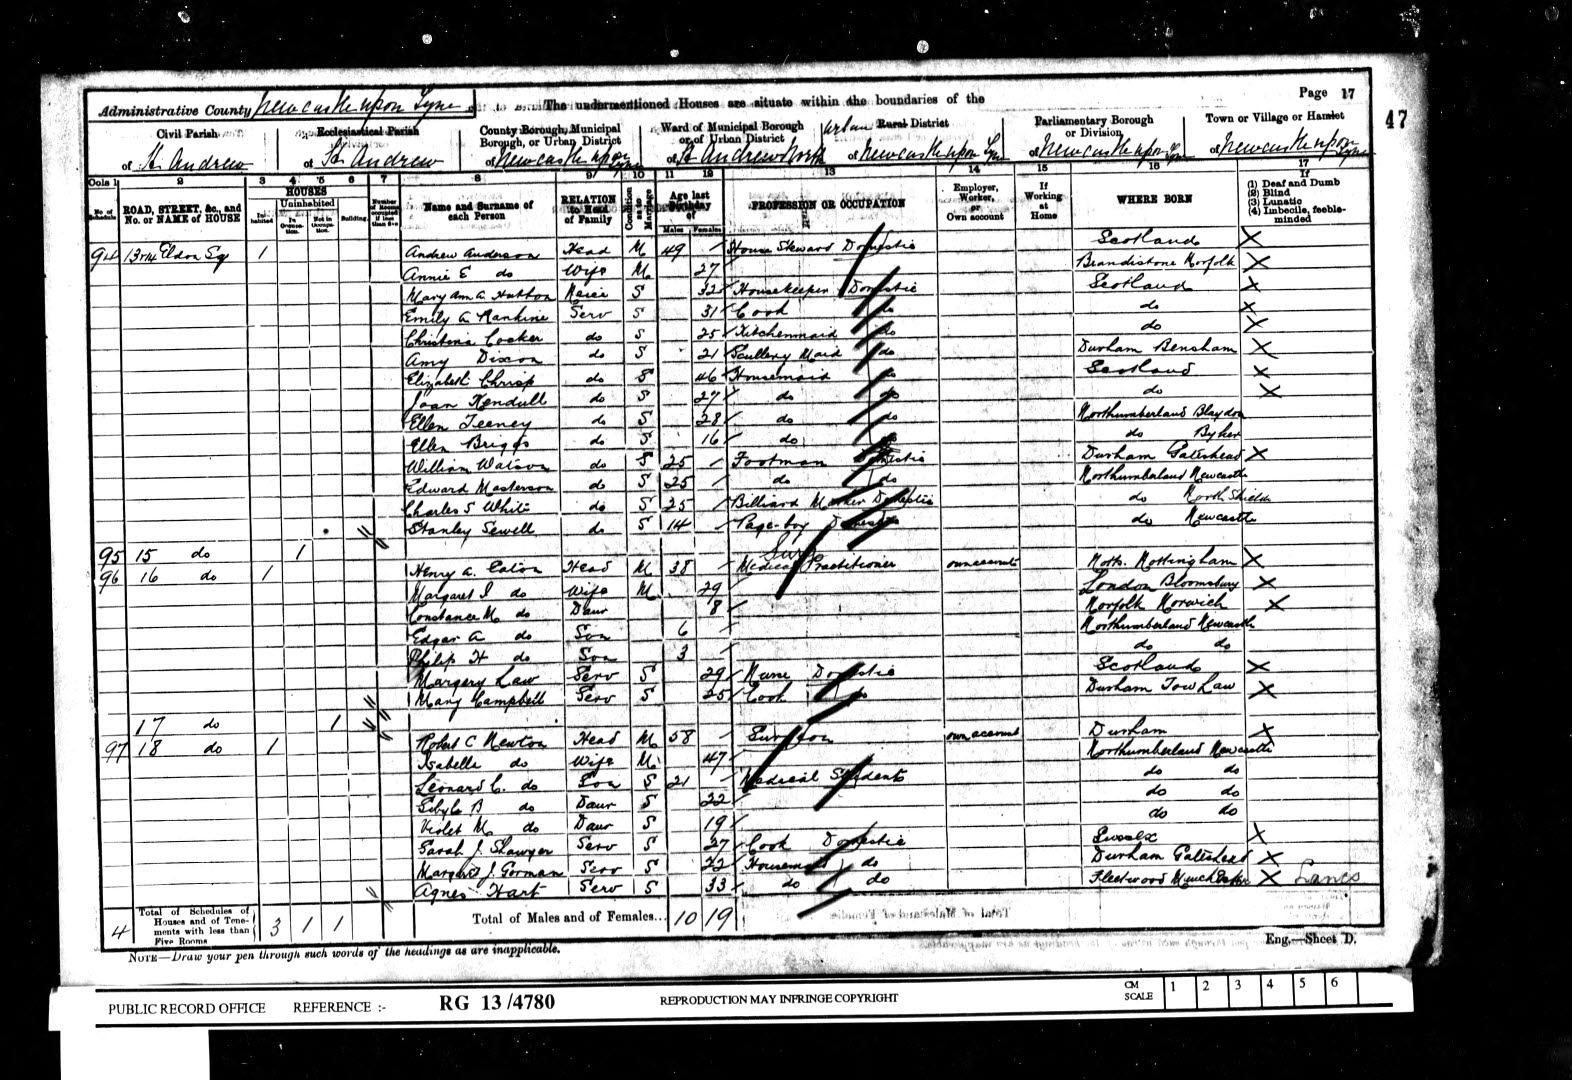 Page 17
Administrative County Newcastle upon Tyne
The undermentioned Houses are situate within the boundaries of the
47
Civil Parish
Ecclesiastical Parish
County Borough, Municipal Borough, or Urban District
Ward of Municipal Borough or of Urban District
Urban Rural District
Parliamentary Borough or Division
Town or Village or Hamlet
of St. Andrew
of St Andrew
of Newcastle upon Tyne
of St Andrew North
of Newcastle upon Tyne
of Newcastle upon Tyne
of Newcastle upon Tyne
Cols 1 2 3 4 5 6 7 8 9 10 11 12 13 14 15 16 17
No. of Schedule
ROAD, STREET, &c., and No. or NAME of HOUSE
HOUSES
Inhabited
Uninhabited
In Occupation.
Not in Occupation.
Building.
Number of Rooms occupied if less than five
Name and Surname of each Person
RELATION to Head of Family
Condition as to Marriage
Age last Birthday of
Males Females
PROFESSION OR OCCUPATION
Employer, Worker, or Own account
If Working at Home
WHERE BORN
If
(1) Deaf and Dumb
(2) Blind
(3) Lunatic
(4) Imbecile, feeble-minded
94 Eldon Sq 1 Andrew Anderson Head M 49 House Steward Domestic Scotland X
Annie E do Wife M 27 Brandistone Norfolk X
Mary Ann A. Hutton Neice S 32 Housekeeper Domestic Scotland X
Emily A Rankine Serv S 31 Cook do do X
Christina Cocker do S 25 Kitchenmaid do do X
Amy Dixon do S 21 Scullery Maid do Durham Bensham X
Elizabeth Chrisp do S 46 Housemaid do Scotland X
Joan Kendull do S 27 do do do X
Ellen Teeney do S 28 do do Northumberland Blaydon
Ellen Briggs do S 16 do do do Byker
William Watson do S 25 Footman Domestic Durham Gateshead X
Edward Masterson do S 25 do do Northumberland Newcastle
Charles S White do S 25 Billiard Marker Domestic do North Shields
Stanley Sewell do S 14 Page-boy Domestic do Newcastle
95 15 do 1
96 16 do 1 Henry A. Eaton Head M 38 Medical Practitioner own account Notts. Nottingham X
Margaret I do Wife M 29 London Bloomsbury X
Constance M. do Daur 8 Norfolk Norwich X
Edgar A do Son 6 Northumberland Newcastle
Philip H do Son 3 do do
Margery Law Serv S 29 Nurse Domestic Scotland X
Mary Campbell Serv S 25 Cook do Durham Tow Law X
17 do 1
97 18 do 1 Robert C Newton Head M 58 Surgeon own account Durham X
Isabella do Wife M 47 Northumberland Newcastle
Leonard C. do Son S 21 Medical Student do do
Sibyle B do Daur S 22 do do
Violet M. do Daur S 19 do do
Sarah J. Shawyer Serv S 27 Cook Domestic Sussex X
Margaret J. Gorman Serv S 22 Housemaid do Durham Gateshead X
Agnes Hart Serv S 33 do do Fleetwood X Lancs
4 Total of Schedules of Houses and of Tenements with less than Five Rooms 3 1 1 Total of Males and of Females... 10 19
NOTE—Draw your pen through such words of the headings as are inapplicable.
Eng.—Sheet D.
PUBLIC RECORD OFFICE REFERENCE :- RG 13/4780 REPRODUCTION MAY INFRINGE COPYRIGHT CM SCALE 1 2 3 4 5 6